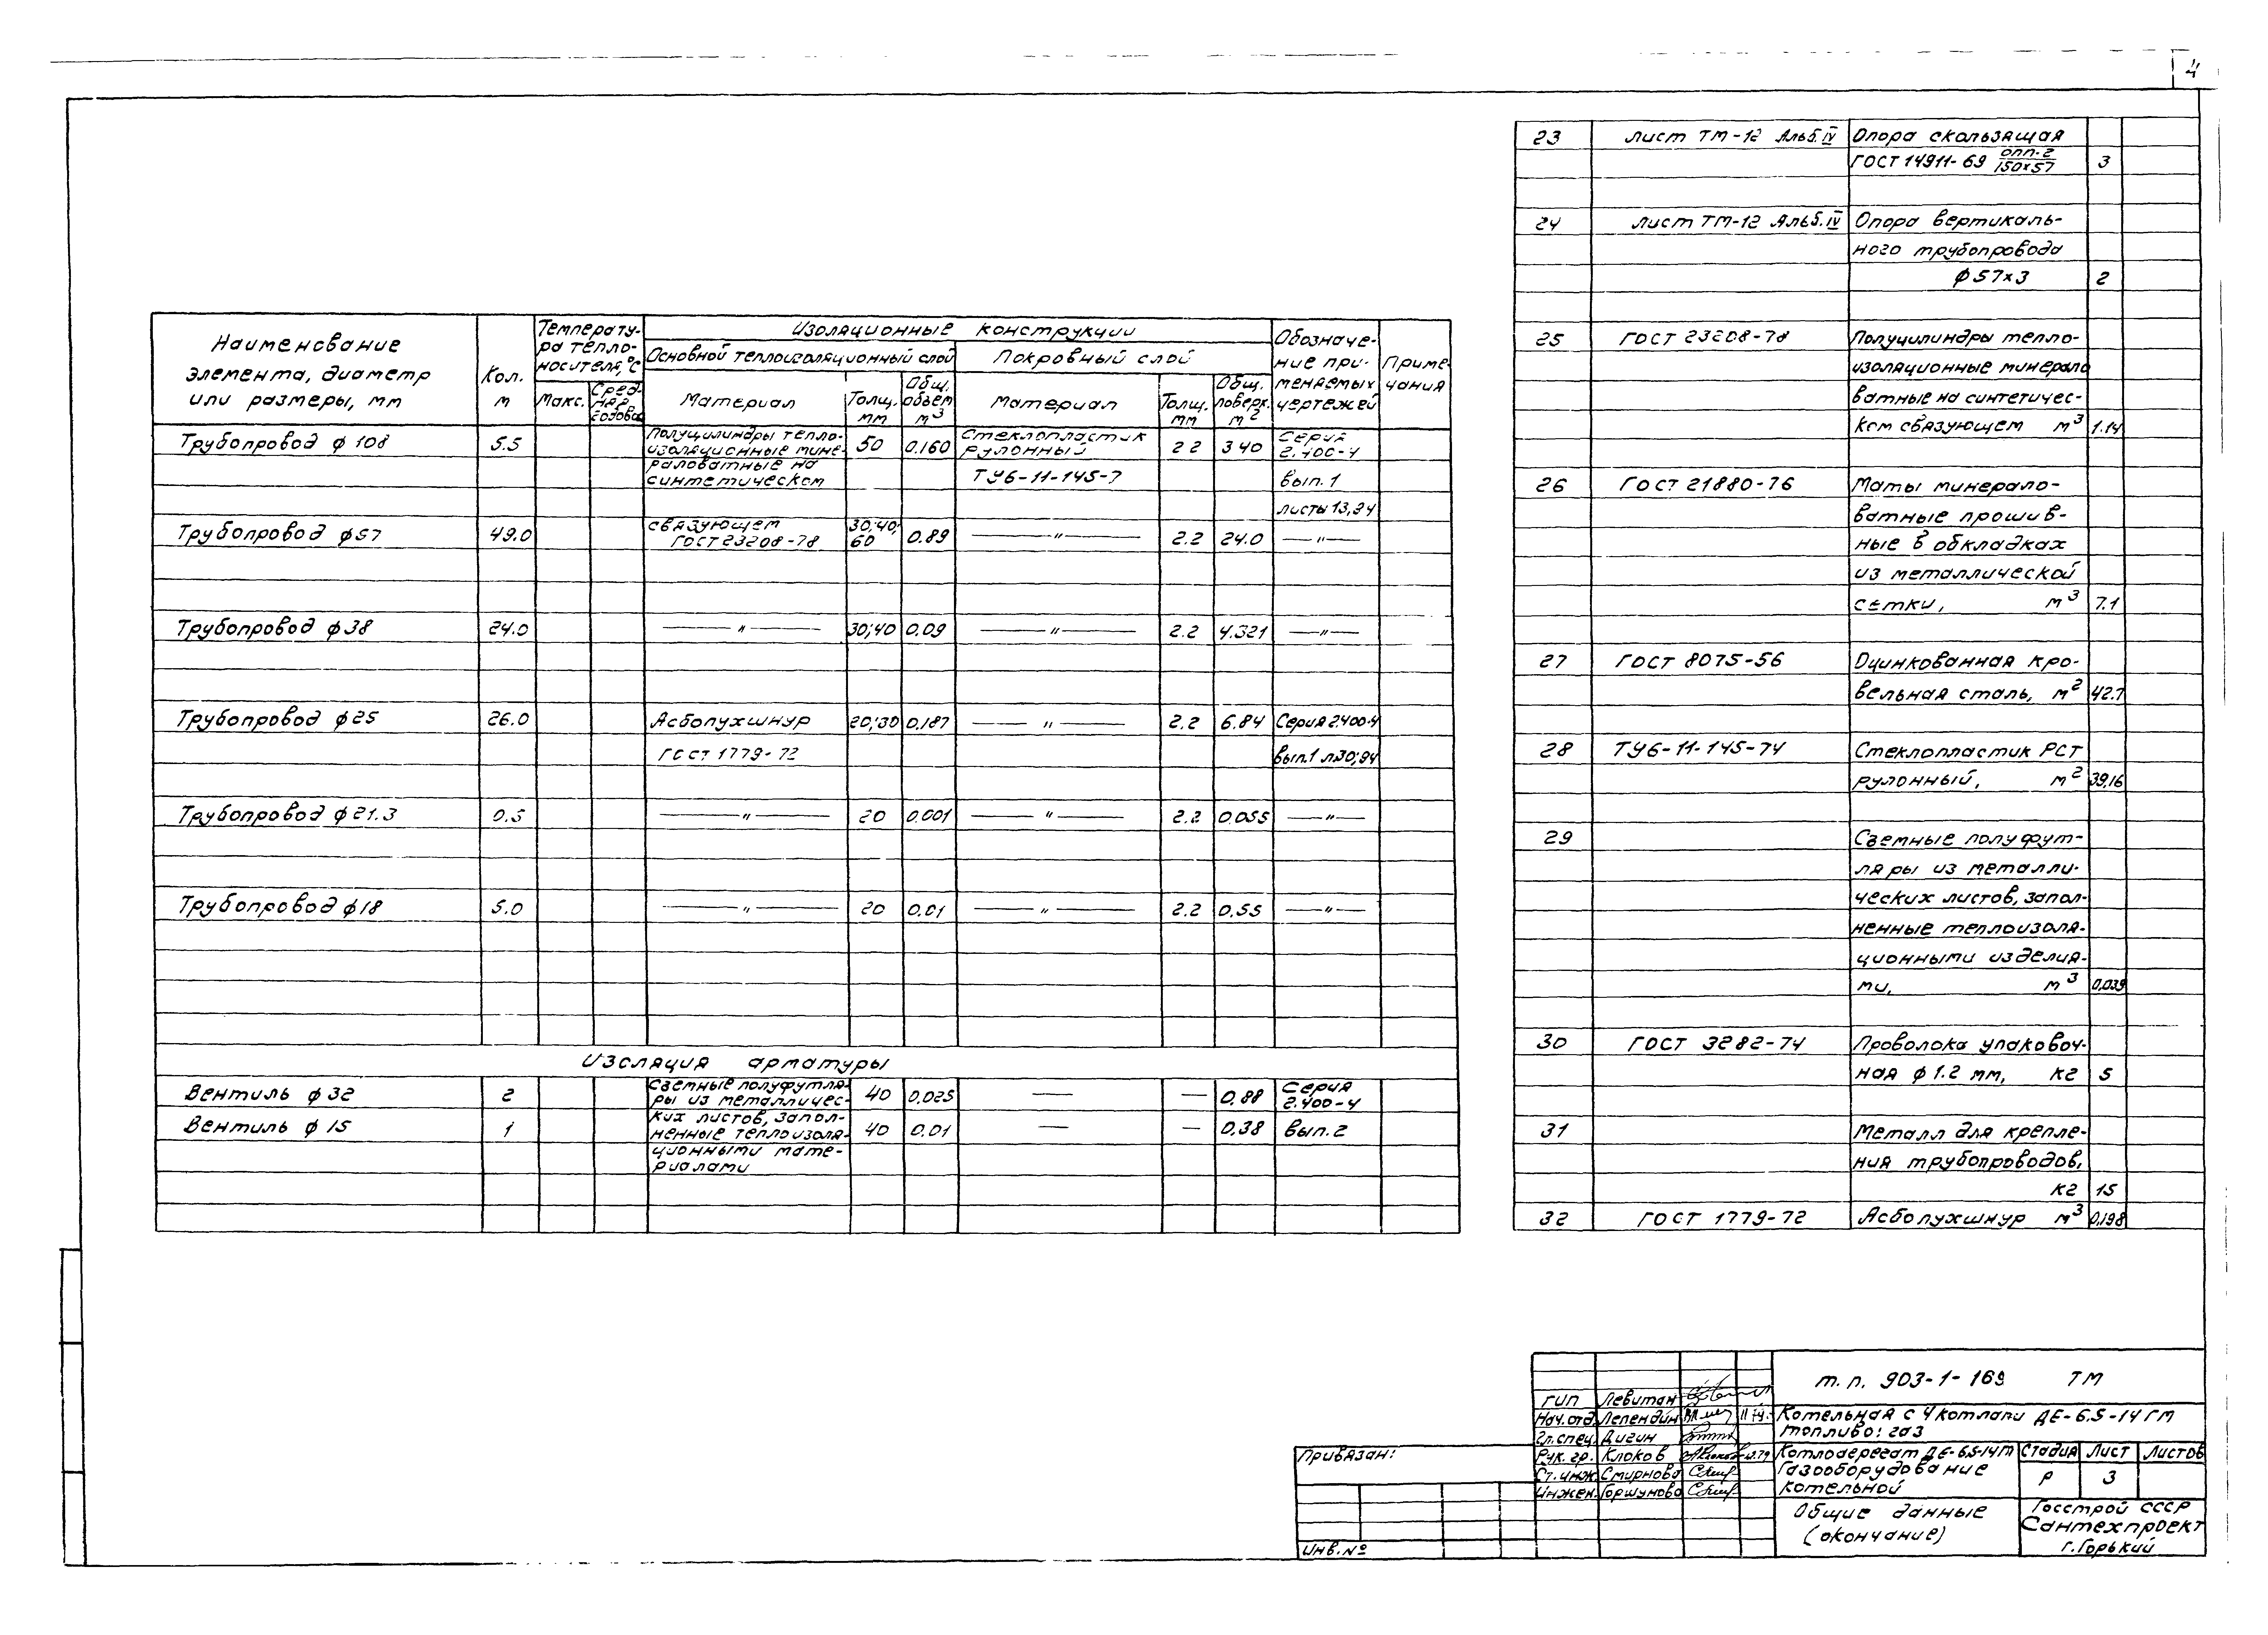 4
Наименование элемента, диаметр или размеры, мм
Кол. м
Температура теплоносителя, °С
Макс.
Среднегодовая
Изоляционные конструкции
Основной теплоизоляционный слой
Покровный слой
Материал
Толщ. мм
Общ. объем м³
Материал
Толщ. мм
Общ. поверх. м²
Обозначение применяемых чертежей
Примечания
Трубопровод ф 108 5.5 Полуцилиндры теплоизоляционные минераловатные на синтетическом 50 0.160 Стеклопластик рулонный ТУ6-11-145-7 2 2 3 40 Серия 2.400-4 вып. 1 листы 13,24
Трубопровод ф57 49.0 связующем ГОСТ 23208-78 30;40; 60 0.89 —"— 2.2 24.0 —"—
Трубопровод ф38 24.0 —"— 30;40 0.09 —"— 2.2 4.321 —"—
Трубопровод ф25 26.0 Асбопухшнур ГОСТ 1779-72 20;30 0.187 —"— 2.2 6.84 Серия 2.400-4 вып.1 л30;94
Трубопровод ф21.3 0.5 —"— 20 0.001 —"— 2.2 0.055 —"—
Трубопровод ф18 5.0 —"— 20 0.01 —"— 2.2 0.55 —"—
Изоляция арматуры
Вентиль ф 32 2 Сьемные полуфутляры из металличес- 40 0.025 — — 0.88 Серия 2.400-4
Вентиль ф 15 1 ких листов, заполненные теплоизоляционными материалами 40 0.01 — — 0.38 вып. 2
23 лист ТМ-12 Альб.IV Опора скользящая
ГОСТ 14911-69 ОПП-2/150×57 3
24 лист ТМ-12 Альб.IV Опора вертикаль-
ного трубопровода
ф57×3 2
25 ГОСТ 23208-78 Полуцилиндры тепло-
изоляционные минерало
ватные на синтетичес-
ком связующем м³ 1.14
26 ГОСТ 21880-76 Маты минерало-
ватные прошив-
ные в обкладках
из металлической
сетки, м³ 7.1
27 ГОСТ 8075-56 Оцинкованная кро-
вельная сталь, м² 42.7
28 ТУ6-11-145-74 Стеклопластик РСТ
рулонный, м² 39,16
29 Сьемные полуфут-
ляры из металли-
ческих листов, запол-
ненные теплоизоля-
ционными изделия-
ми, м³ 0,039
30 ГОСТ 3282-74 Проволока упаковоч-
ная ф 1.2 мм, кг 5
31 Металл для крепле-
ния трубопроводов,
кг 15
32 ГОСТ 1779-72 Асбопухшнур м³ 0,198
т.п. 903-1-169 ТМ
ГИП Левитан
Нач.отд. Лепендин
Гл.спец. Дигин
Рук. гр. Клоков
Ст.инж. Смирнова
Инжен. Горшунова
Котельная с 4 котлами ДЕ-6.5-14ГМ
Топливо: газ
Котлоагрегат ДЕ-6.5-14ГМ
Газооборудование
котельной
Стадия Лист Листов
Р 3
Общие данные
(окончание)
Госстрой СССР
Сантехпроект
г.Горький
Привязан:
Инв.№